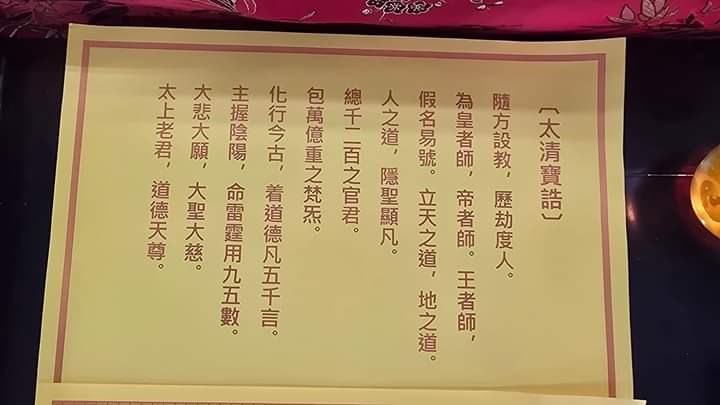 〔太清寶誥〕
隨方設教，歷劫度人。
為皇者師，帝者師。王者師，
假名易號。立天之道，地之道。
人之道，隱聖顯凡。
總千二百之官君。
包萬億重之梵炁。
化行今古，着道德凡五千言。
主握陰陽，命雷霆用九五數。
大悲大願，大聖大慈。
太上老君，道德天尊。